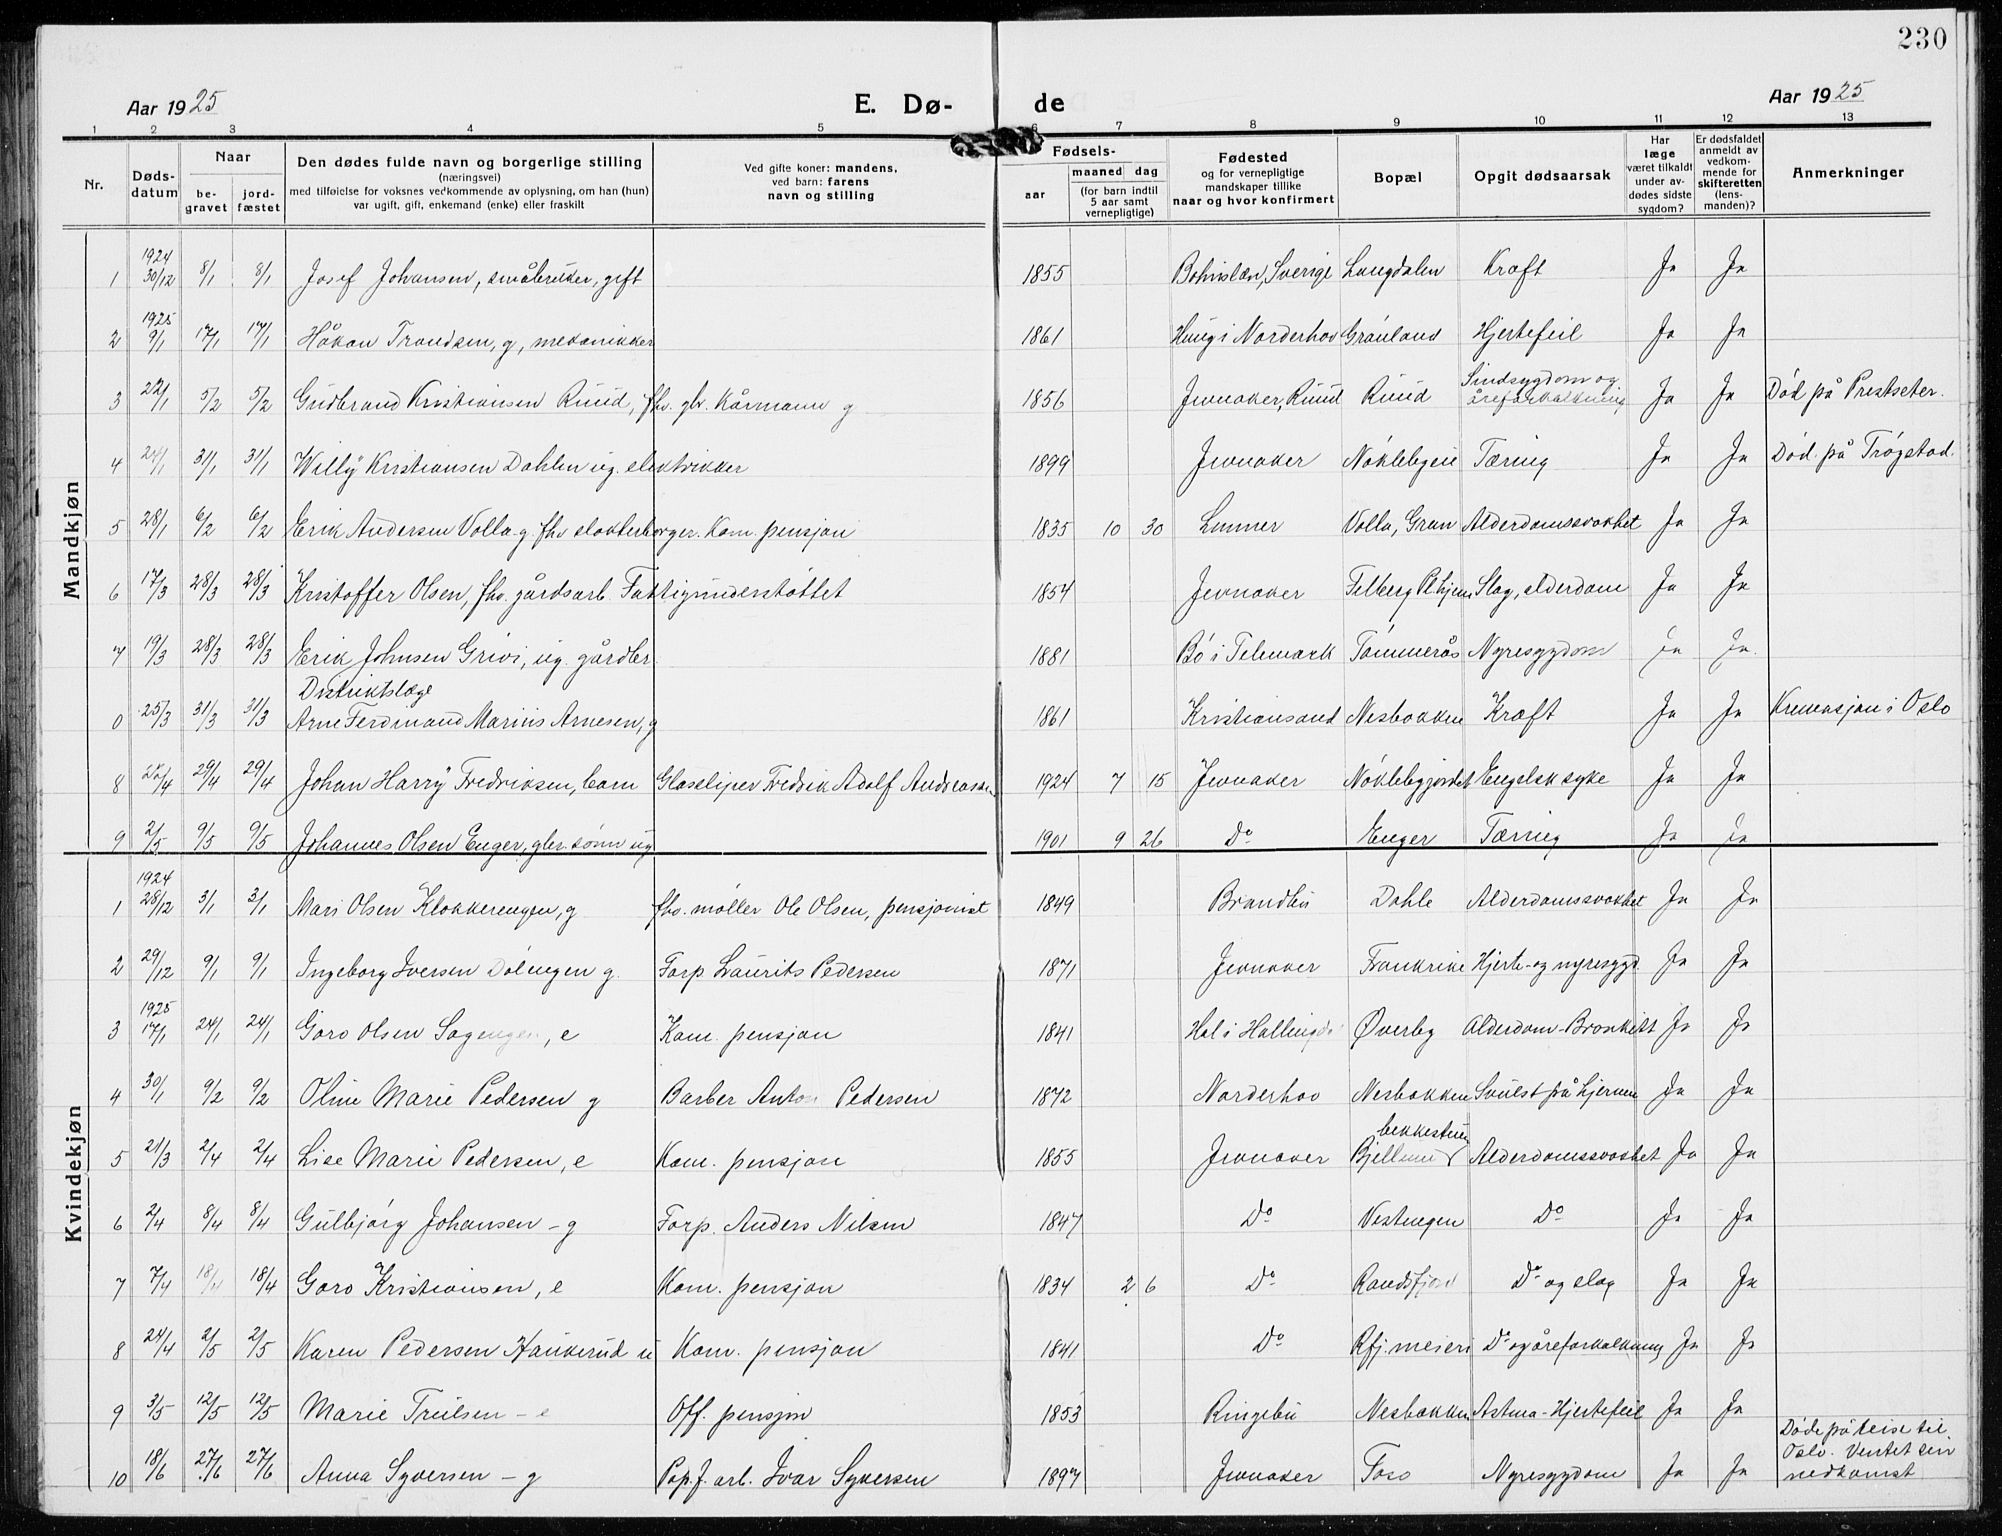 230
Aar 1925 E. Dø- de Aar 1925
1 2 3 4 5 6 7 8 9 10 11 12 13
Nr. Dødsdatum Naar begravet jordfæstet
Den dødes fulde navn og borgerlige stilling
(næringsvei)
med tilføielse for voksnes vedkommende av oplysning, om han (hun)
var ugift, gift, enkemand (enke) eller fraskilt
Ved gifte koner: mandens,
ved barn: farens
navn og stilling
Fødsels-
aar maaned dag
(for barn indtil
5 aar samt
vernepligtige)
Fødested
og for vernepligtige
mandskaper tillike
naar og hvor konfirmert
Bopæl
Opgit dødsaarsak
Har
læge
været tilkaldt
under avdødes sidste
sygdom?
Er dødsfaldet
anmeldt av
vedkommende for
skifteretten
(lensmanden)?
Anmerkninger
Mandkjøn
1 1924 30/12 8/1 8/1 Josef Johansen, småbruker, gift 1855 Bohuslæn, Sverige Langdalen Kræft Ja Ja
2 1925 9/1 17/1 17/1 Håkon Trondsen, g, mekanikker 1861 Haug i Norderhov Grønland Hjertefeil Ja Ja
3 22/1 5/2 5/2 Gudbrand Kristiansen Ruud, fhv. gbr. Kårmann g 1856 Jevnaker, Ruud Ruud Sindsygdom og åreforkalkning Ja Ja Død på Prestseter.
4 24/1 31/1 31/1 Willy Kristiansen Dahlen ug. elektrikker 1899 Jevnaker Nøklebyeie Tæring Ja Ja Død på Trøgstad.
5 28/1 6/2 6/2 Erik Andersen Volla g. fhv slakterborger. Kom. pensjon 1835 10 30 Lunner Volla, Gran Alderdomssvakhet Ja Ja
6 17/3 28/3 28/3 Kristoffer Olsen, fhv. gårdsarb. Fattigunderstøttet 1854 Jevnaker Felberg Pl.hjem Slag, alderdom Ja Ja
7 19/3 28/3 28/3 Erik Johnsen Grivi, ug. gårdbr. 1881 Bø i Telemark Tømmerås Nyresygdom Ja Ja.
0 25/3 31/3 31/3 Distriktslæge Arne Ferdinand Marius Arnesen, g 1861 Kristiansand Nesbakken Kræft Ja Ja Kremasjon i Oslo
8 /4 29/4 29/4 Johan Harry Fredriksen, barn Glassliper Fredrik Adolf Andreassen 1924 7 15 Jevnaker Nøklebyjordet Engelsk syke Ja Ja
9 2/5 9/5 9/5 Johannes Olsen Enger, gbr. sønn ug 1901 9 26 Do Enger Tæring Ja Ja
Kvindekjøn
1 1924 28/12 3/1 3/1 Mari Olsen Klokkerengen, g fhv. møller Ole Olsen, pensjonist 1849 Brandbu Dahle Alderdomssvakhet Ja Ja
2 29/12 9/1 9/1 Ingeborg Iversen Dølengen g. Forp. Laurits Pedersen 1871 Jevnaker Frankrike Hjerte- og nyresygd. Ja Ja
3 1925 17/1 24/1 24/1 Goro Olsen Sagengen, e Kom. pensjon 1841 Hol i Hallingd Øverby Alderdom-Bronkitt Ja Ja
4 30/1 9/2 9/2 Oline Marie Pedersen g Barber Anton Pedersen 1872 Norderhov Nesbakken Svulst på hjernen Ja Ja
5 21/3 2/4 2/4 Lise Marie Pedersen, e Kom. pensjon 1855 Jevnaker Bjellum bekkestuen Alderdomssvakhet Ja Ja
6 2/4 8/4 8/4 Gulbjørg Johansen - g Forp. Anders Nilsen 1847 Do Vestengen Do Ja Ja
7 7/4 18/4 18/4 Goro Kristiansen, e Kom. pensjon 1834 2 6 Do Randsfjord Do og slag Ja Ja
8 24/4 2/5 2/5 Karen Pedersen Haukerud u Kom. pensjon 1841 Do Rfj. meieri Do og åreforkalkning Ja Ja
9 3/5 12/5 12/5 Marie Trulsen - e Off. pensjon 1853 Ringebu Nesbakken Astma-Hjertefeil Ja Ja
10 18/6 27/6 27/6 Anna Syversen - g Pap.f. arb. Ivar Syversen 1897 Jevnaker Foso Nyresygdom Ja Ja Døde på reise til Oslo. Ventet sin nedkomst